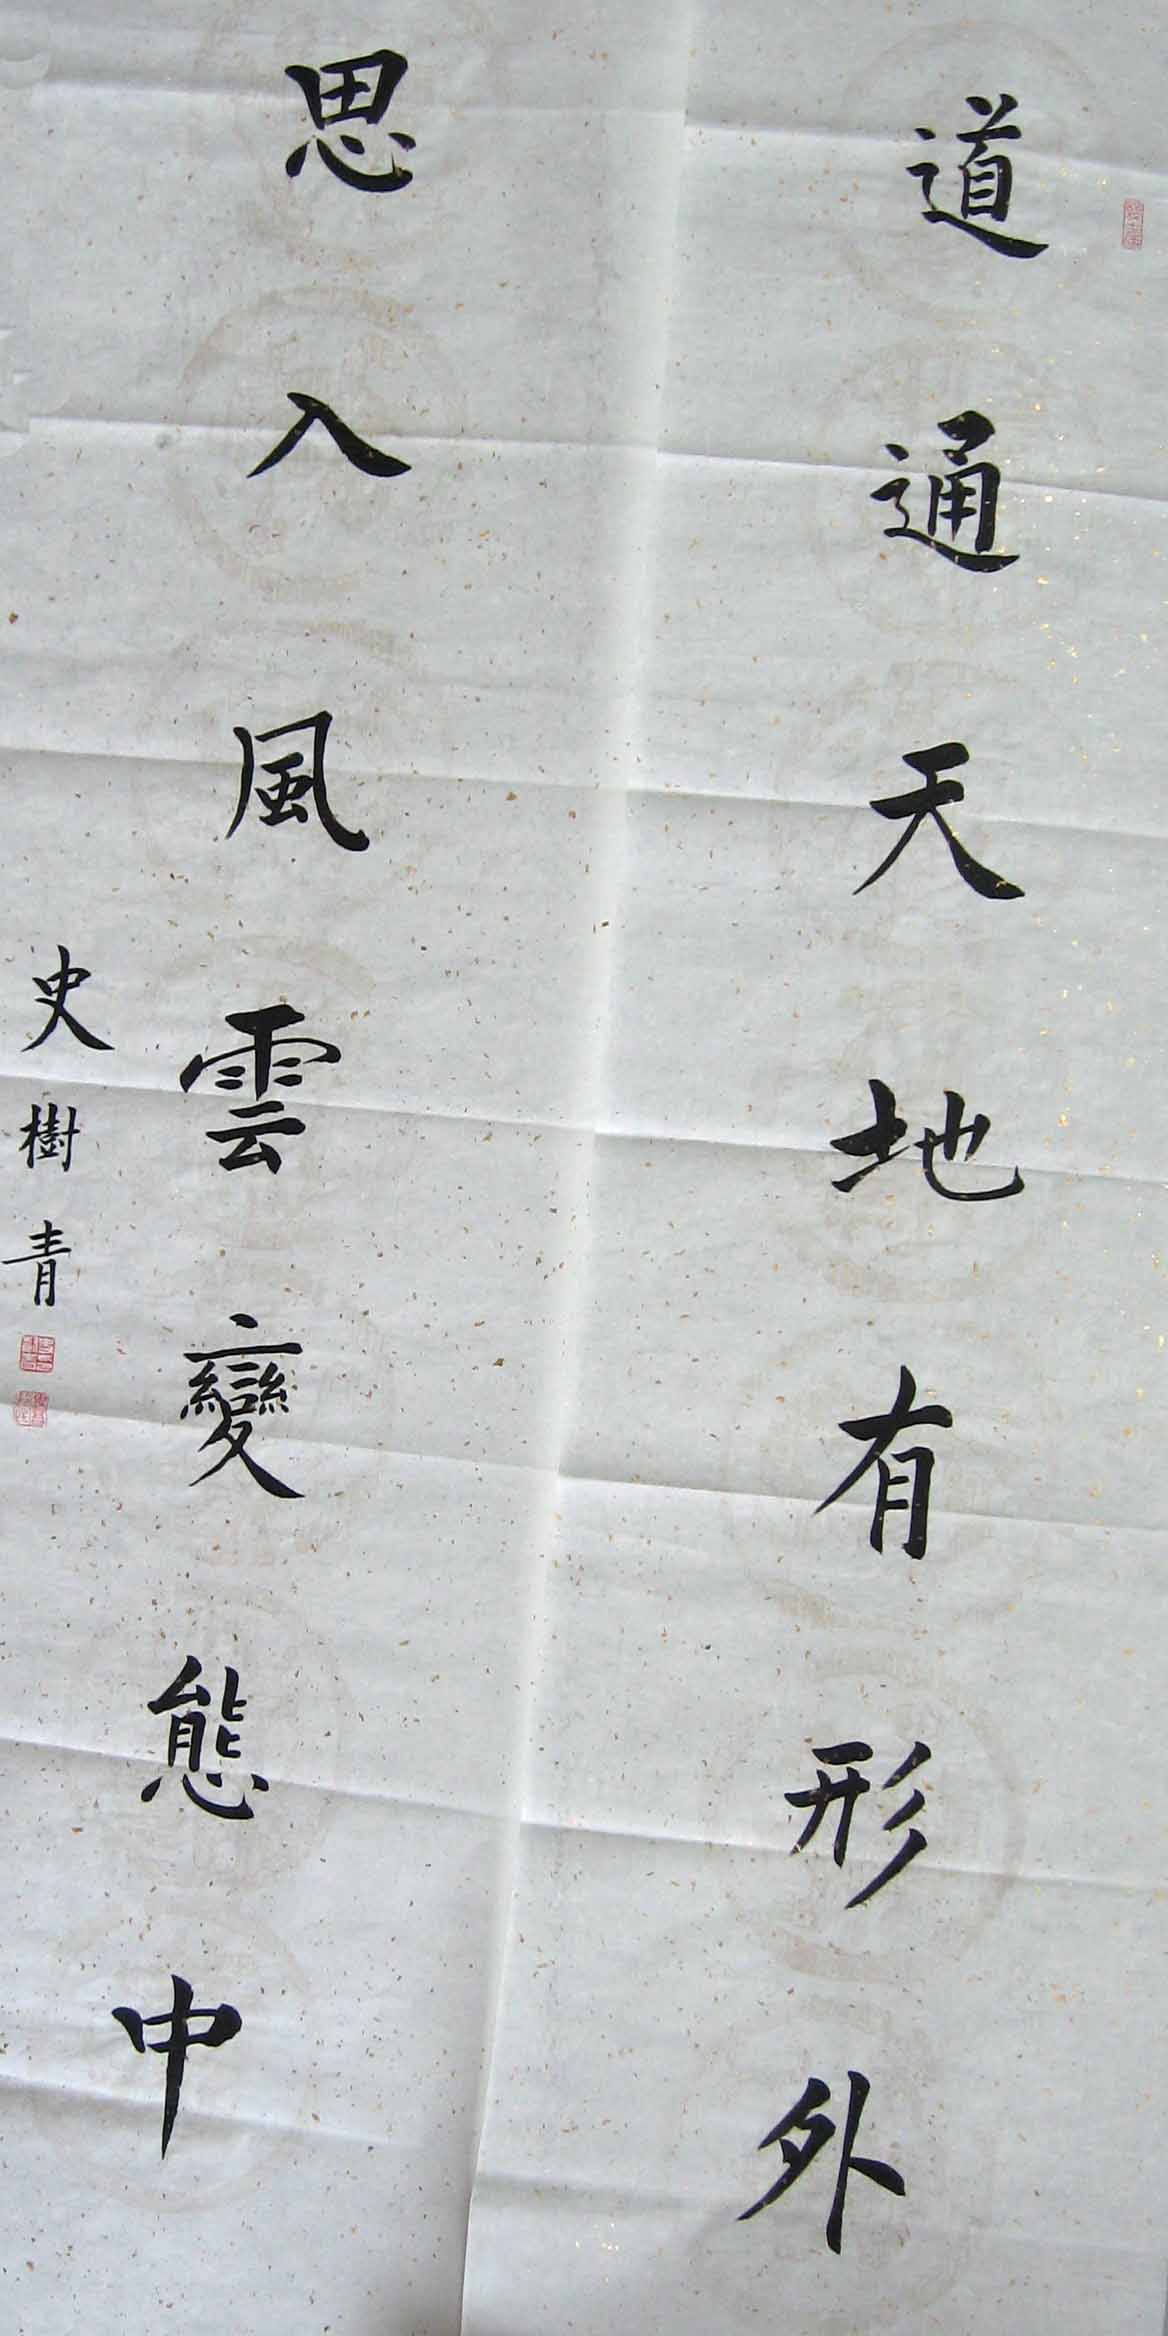 道通天地有形外
思入風雲變態中
史樹青